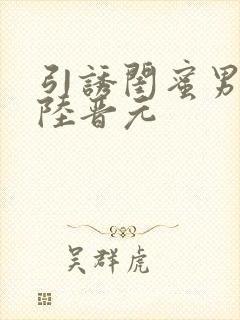 引誘閨蜜男
陸晋元
吴群虎